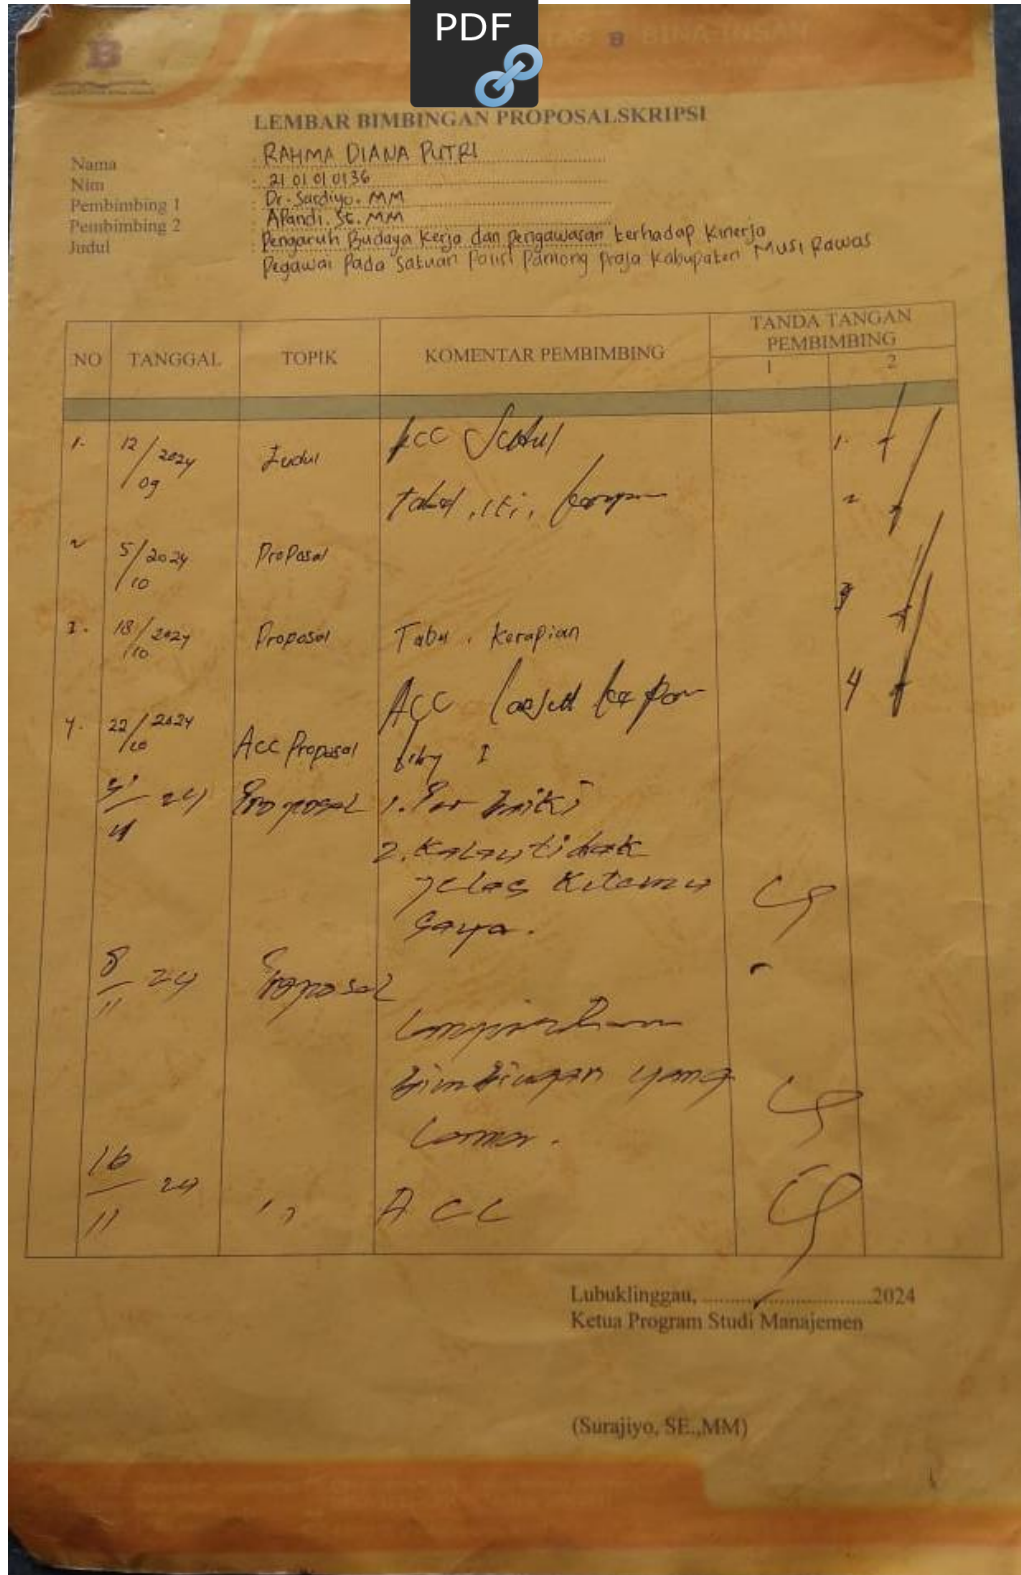 PDF
B BINA INSAN
LEMBAR BIMBINGAN PROPOSALSKRIPSI
Nama : RAHMA DIANA PUTRI
Nim : 21 01 01 0136
Pembimbing 1 : Dr. Sardiyo. MM
Pembimbing 2 : Apandi. SE. MM
Judul : Pengaruh Budaya Kerja dan Pengawasan terhadap Kinerja
Pegawai Pada Satuan Polisi Pamong Praja Kabupaten Musi Rawas
NO TANGGAL TOPIK KOMENTAR PEMBIMBING TANDA TANGAN PEMBIMBING
1 2
1. 12/09 2024 Judul Acc Judul 1.
2
2 5/10 2024 Proposal
3
3. 18/10 2024 Proposal Tabel . Kerapian
4
4. 22/10 2024 Acc Proposal Acc
I
24 Proposal 1. Perbaiki
2. Kalau tidak
jelas ketemu
saya.
8/11 24 Proposal
Lampirkan
bimbingan yang
lama.
16/11 24 '' ACC
Lubuklinggau, 2024
Ketua Program Studi Manajemen
(Surajiyo, SE.,MM)